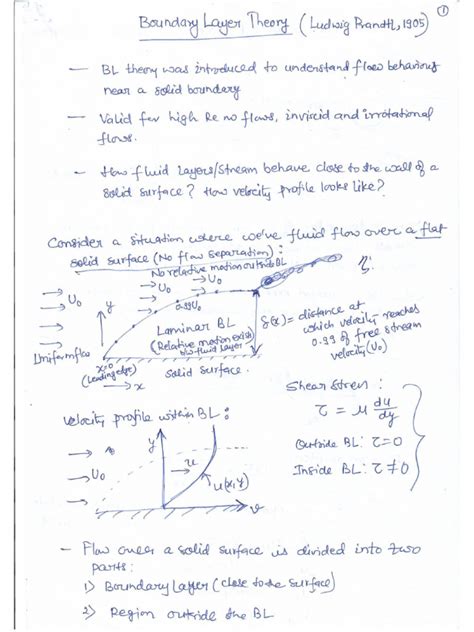 ①
Boundary Layer Theory (Ludwig Prandtl, 1905)
— BL theory was introduced to understand flow behaviour
near a solid boundary
— Valid for high Re no flows, inviscid and irrotational
flows.
— How fluid layers/stream behave close to the wall of a
solid surface? How velocity profile looks like?
Consider a situation where we've fluid flow over a flat
solid surface (No flow separation):
No relative motion outside BL
→ U₀
→ U₀
→ U₀
0.99U₀
y
Laminar BL
(Relative motion exists
b/w fluid layer)
δ(x) = distance at
which velocity reaches
0.99 of free stream
velocity (U₀)
Uniform flow
x=0
(Leading edge)
→ x
Solid Surface
Shear Stress :
τ = μ du/dy
Outside BL: τ=0
Inside BL: τ≠0
Velocity profile within BL:
y
→ U₀
u
u(x,y)
— Flow over a solid surface is divided into two
parts:
1) Boundary Layer (close to the surface)
2) Region outside the BL